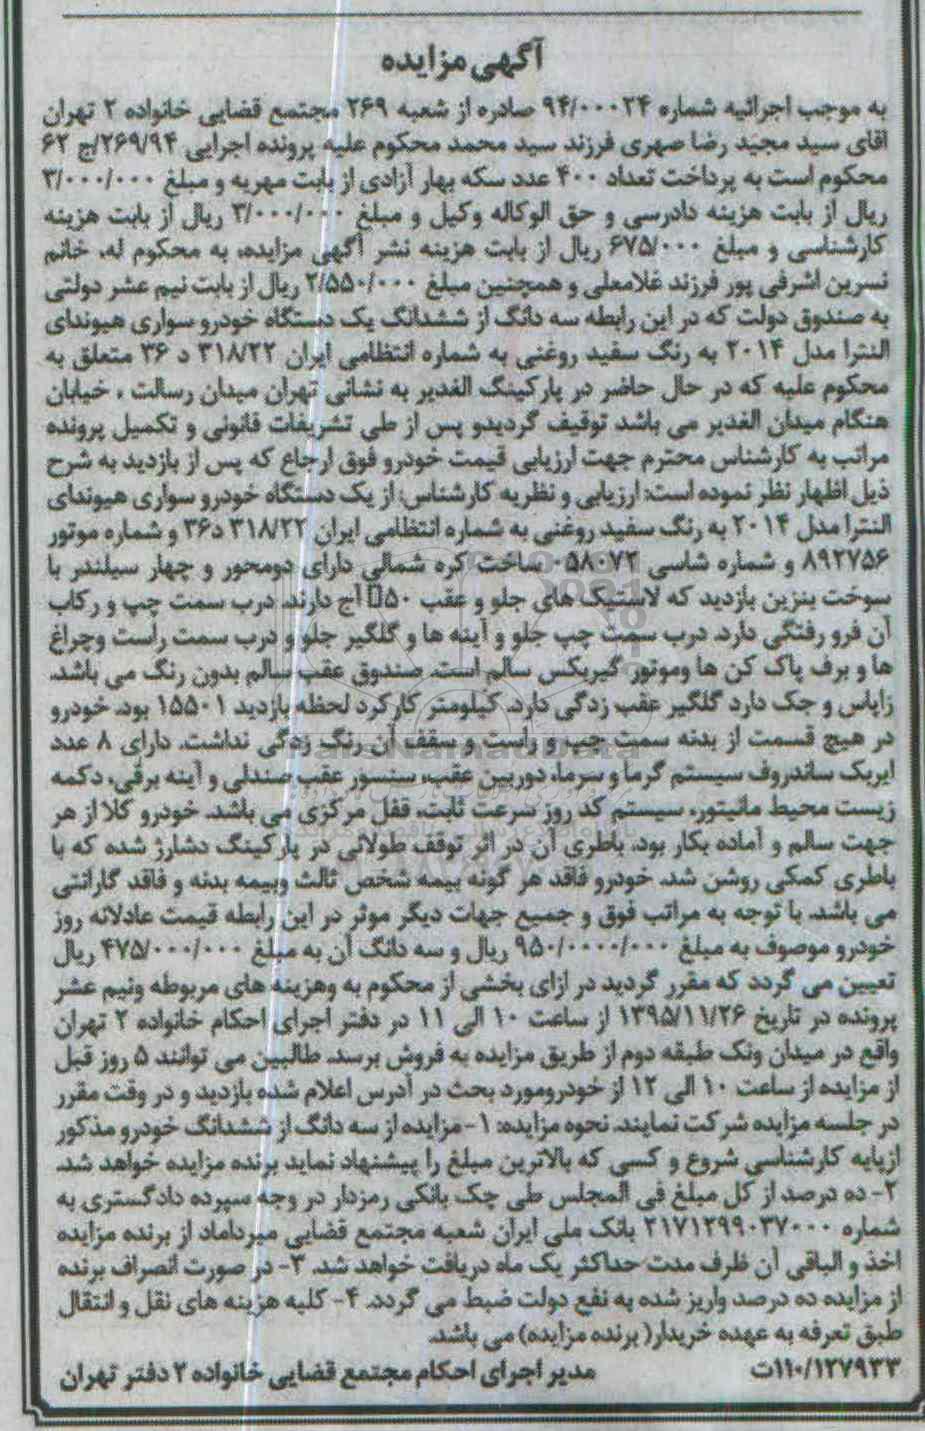 آگهی مزایده
به موجب اجرائیه شماره ۹۴/۰۰۰۲۴ صادره از شعبه ۲۶۹ مجتمع قضایی خانواده ۲ تهران
اقای سید مجید رضا صهری فرزند سید محمد محکوم علیه پرونده اجرایی ۲۶۹/۹۴/ج ۶۲
محکوم است به پرداخت تعداد ۴۰۰ عدد سکه بهار آزادی از بابت مهریه و مبلغ ۳/۰۰۰/۰۰۰
ریال از بابت هزینه دادرسی و حق الوکاله وکیل و مبلغ ۳/۰۰۰/۰۰۰ ریال از بابت هزینه
کارشناسی و مبلغ ۶۷۵/۰۰۰ ریال از بابت هزینه نشر آگهی مزایده، به محکوم له، خانم
نسرین اشرفی پور فرزند غلامعلی و همچنین مبلغ ۲/۵۵۰/۰۰۰ ریال از بابت نیم عشر دولتی
به صندوق دولت که در این رابطه سه دانگ از ششدانگ یک دستگاه خودرو سواری هیوندای
النترا مدل ۲۰۱۴ به رنگ سفید روغنی به شماره انتظامی ایران ۳۱۸/۲۲ د ۳۶ متعلق به
محکوم علیه که در حال حاضر در پارکینگ الغدیر به نشانی تهران میدان رسالت ، خیابان
هنگام میدان الغدیر می باشد توقیف گردیدو پس از طی تشریفات قانونی و تکمیل پرونده
مراتب به کارشناس محترم جهت ارزیابی قیمت خودرو فوق ارجاع که پس از بازدید به شرح
ذیل اظهار نظر نموده است: ارزیابی و نظریه کارشناس: از یک دستگاه خودرو سواری هیوندای
النترا مدل ۲۰۱۴ به رنگ سفید روغنی به شماره انتظامی ایران ۳۱۸/۲۲ د۳۶ و شماره موتور
۸۹۲۷۵۶ و شماره شاسی ۰۵۸۰۷۲ ساخت کره شمالی دارای دومحور و چهار سیلندر با
سوخت بنزین بازدید که لاستیک های جلو و عقب ۵۰ آج دارند. درب سمت چپ و رکاب
آن فرو رفتگی دارد. درب سمت چپ جلو و آینه ها و گلگیر جلو و درب سمت راست وچراغ
ها و برف پاک کن ها وموتور گیربکس سالم است. صندوق عقب سالم بدون رنگ می باشد.
زاپاس و جک دارد گلگیر عقب زدگی دارد. کیلومتر کارکرد لحظه بازدید ۱۵۵۰۱ بود. خودرو
در هیچ قسمت از بدنه سمت چپ و راست و سقف آن رنگ زدگی نداشت. دارای ۸ عدد
ایربک ساندروف سیستم گرما و سرما، دوربین عقب، سنسور عقب صندلی و آینه برقی، دکمه
زیست محیط مانیتور، سیستم کد روز سرعت ثابت، قفل مرکزی می باشد. خودرو کلا از هر
جهت سالم و آماده بکار بود، باطری آن در اثر توقف طولانی در پارکینگ دشارژ شده که با
باطری کمکی روشن شد. خودرو فاقد هر گونه بیمه شخص ثالث وبیمه بدنه و فاقد گارانتی
می باشد. با توجه به مراتب فوق و جمیع جهات دیگر موثر در این رابطه قیمت عادلانه روز
خودرو موصوف به مبلغ ۹۵۰/۰۰۰۰/۰۰۰ ریال و سه دانگ آن به مبلغ ۴۷۵/۰۰۰/۰۰۰ ریال
تعیین می گردد که مقرر گردید در ازای بخشی از محکوم به وهزینه های مربوطه ونیم عشر
پرونده در تاریخ ۱۳۹۵/۱۱/۲۶ از ساعت ۱۰ الی ۱۱ در دفتر اجرای احکام خانواده ۲ تهران
واقع در میدان ونک طبقه دوم از طریق مزایده به فروش برسد. طالبین می توانند ۵ روز قبل
از مزایده از ساعت ۱۰ الی ۱۲ از خودرومورد بحث در آدرس اعلام شده بازدید و در وقت مقرر
در جلسه مزایده شرکت نمایند. نحوه مزایده: ۱- مزایده از سه دانگ از ششدانگ خودرو مذکور
ازپایه کارشناسی شروع و کسی که بالاترین مبلغ را پیشنهاد نماید برنده مزایده خواهد شد.
۲- ده درصد از کل مبلغ فی المجلس طی چک بانکی رمزدار در وجه سپرده دادگستری به
شماره ۲۱۷۱۲۹۹۰۳۷۰۰۰ بانک ملی ایران شعبه مجتمع قضایی میرداماد از برنده مزایده
اخذ و الباقی آن ظرف مدت حداکثر یک ماه دریافت خواهد شد. ۳- در صورت انصراف برنده
از مزایده ده درصد واریز شده به نفع دولت ضبط می گردد. ۴- کلیه هزینه های نقل و انتقال
طبق تعرفه به عهده خریدار( برنده مزایده) می باشد.
۱۱۰/۱۲۷۹۳۳ت مدیر اجرای احکام مجتمع قضایی خانواده ۲ دفتر تهران